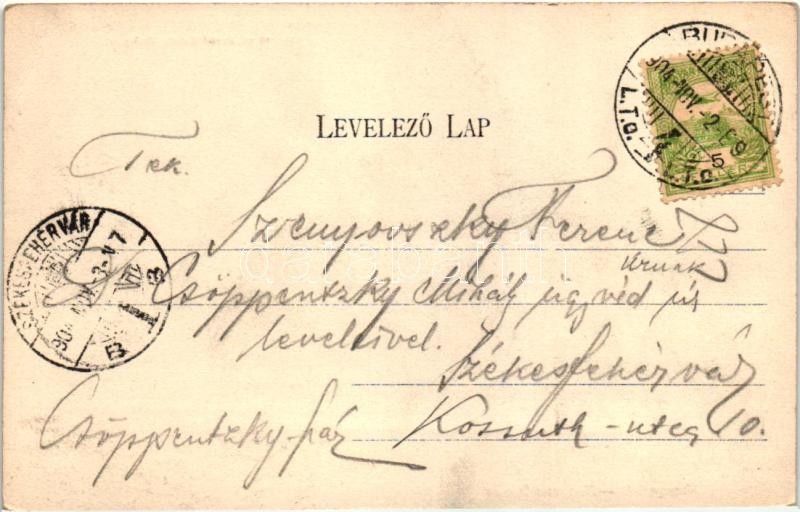 LEVELEZŐ LAP
5
904 NOV. -2
L.T.O.
Tek.
Szenyovszky Ferenc
úrnak
SZÉKESFEHÉRVÁR
904 NOV -3
B
B
Csöppentzky Mihály ügyvéd úr
levelével.
Székesfehérvár
Csöppentzky-ház
Kossuth-utca 10.
darabanth